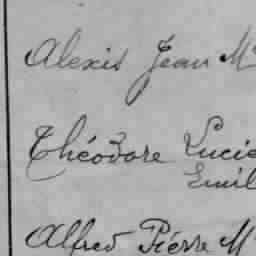 Alexis Jean M
Théodore Lucie
Emil
Alfred Pierre M